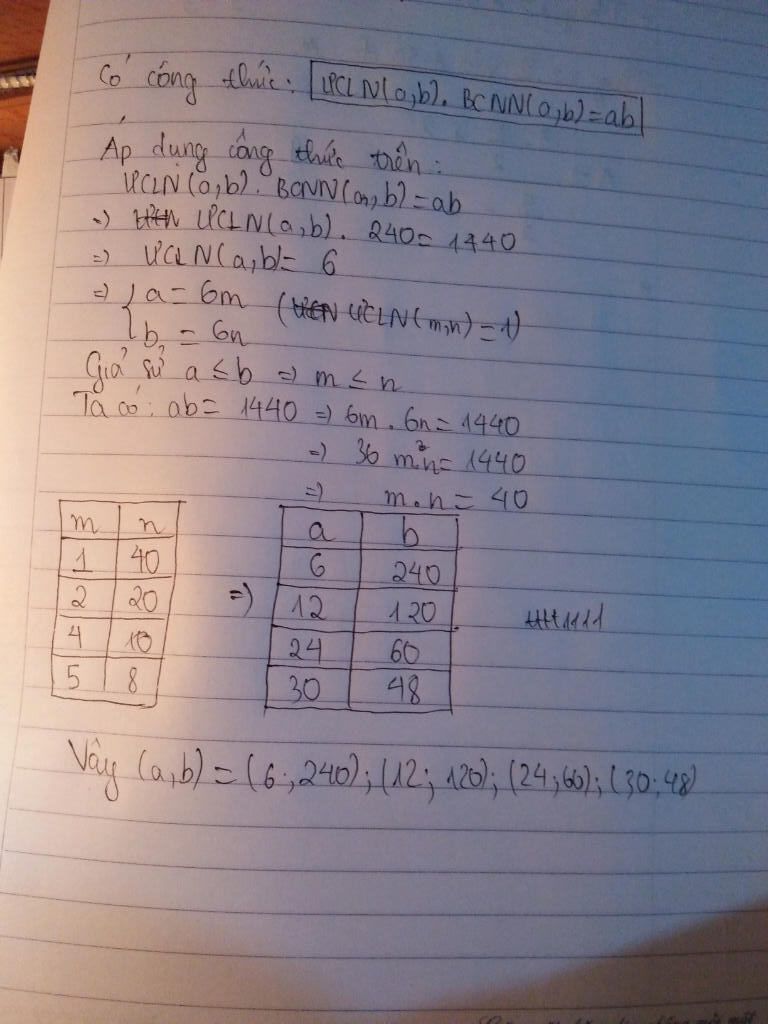 Có công thức: ƯCLN(a,b). BCNN(a,b)=ab
Áp dụng công thức trên:
ƯCLN(a,b). BCNN(a,b)=ab
=> ƯCLN(a,b). 240= 1440
=> ƯCLN(a,b)= 6
=> { a= 6m (ƯCLN(m,n)=1)
b = 6n
Giả sử a ≤ b => m ≤ n
Ta có: ab= 1440 => 6m. 6n= 1440
=> 36 m.n= 1440
=> m.n = 40
m n
1 40
2 20
4 10
5 8
=>
a b
6 240
12 120
24 60
30 48
Vậy (a,b) = (6;240); (12; 120); (24;60); (30;48)